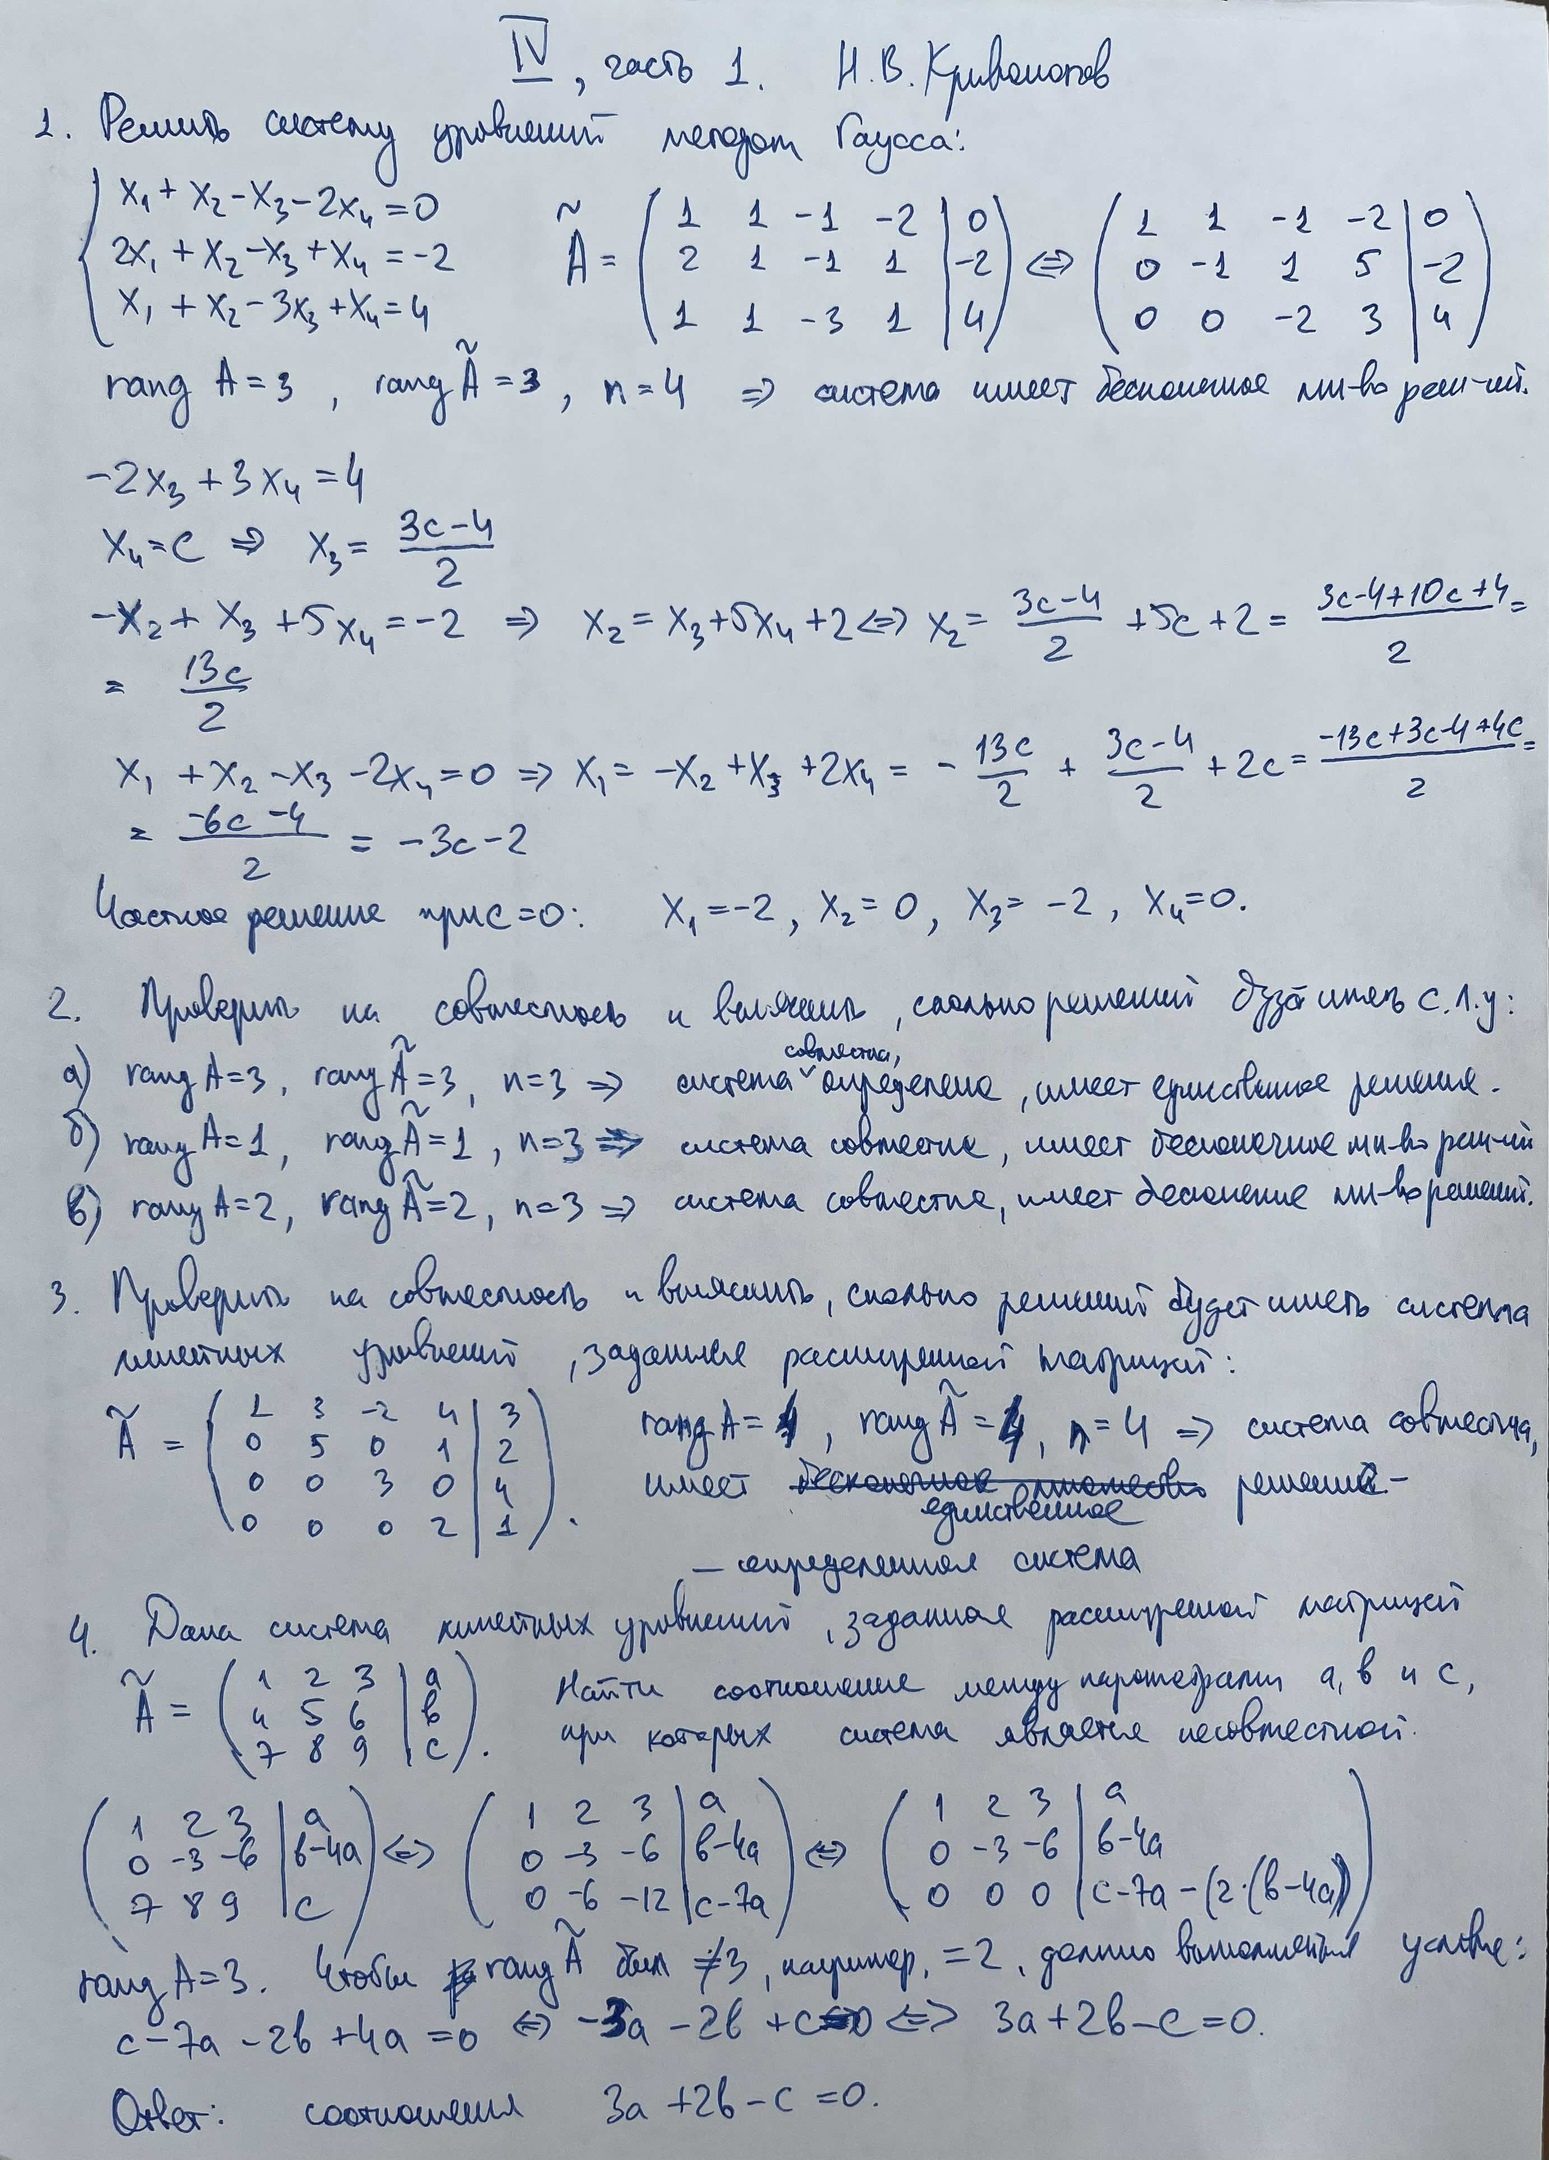 IV, часть 1. Н.В. Кривоногов
1. Решить систему уравнений методом Гаусса:
x₁ + x₂ - x₃ - 2x₄ = 0
2x₁ + x₂ - x₃ + x₄ = -2
x₁ + x₂ - 3x₃ + x₄ = 4
Ã = ( 1 1 -1 -2 | 0 ) ⇔ ( 1 1 -1 -2 | 0 )
2 1 -1 1 | -2    0 -1 1 5 | -2
1 1 -3 1 | 4    0 0 -2 3 | 4
rang A = 3, rang Ã = 3, n = 4 ⇒ система имеет бесконечное мн-во реш-ий.
-2x₃ + 3x₄ = 4
x₄ = c ⇒ x₃ = (3c-4)/2
-x₂ + x₃ + 5x₄ = -2 ⇒ x₂ = x₃ + 5x₄ + 2 ⇔ x₂ = (3c-4)/2 + 5c + 2 = (3c-4+10c+4)/2 =
= 13c/2
x₁ + x₂ - x₃ - 2x₄ = 0 ⇒ x₁ = -x₂ + x₃ + 2x₄ = - 13c/2 + (3c-4)/2 + 2c = (-13c+3c-4+4c)/2 =
= (-6c-4)/2 = -3c-2
Частное решение при c=0: x₁ = -2, x₂ = 0, x₃ = -2, x₄ = 0.
2. Проверить на совместность и выяснить, сколько решений будет иметь с.л.у:
а) rang A = 3, rang Ã = 3, n = 3 ⇒ система совместна, определена, имеет единственное решение.
б) rang A = 1, rang Ã = 1, n = 3 ⇒ система совместна, имеет бесконечное мн-во реш-ий
в) rang A = 2, rang Ã = 2, n = 3 ⇒ система совместна, имеет бесконечное мн-во решений.
3. Проверить на совместность и выяснить, сколько решений будет иметь система
линейных уравнений, заданная расширенной матрицей:
Ã = ( 1 3 -2 4 | 3 ) rang A = 4, rang Ã = 4, n = 4 ⇒ система совместна,
0 5 0 1 | 2
0 0 3 0 | 4 имеет бесконечное множество решение -
0 0 0 2 | 1 . единственное
— определенная система
4. Дана система линейных уравнений, заданная расширенной матрицей
Ã = ( 1 2 3 | a ) Найти соотношение между параметрами a, b и c,
4 5 6 | b
7 8 9 | c . при которых система является несовместной.
( 1 2 3 | a ) ⇔ ( 1 2 3 | a ) ⇔ ( 1 2 3 | a )
0 -3 -6 | b-4a    0 -3 -6 | b-4a    0 -3 -6 | b-4a
7 8 9 | c    0 -6 -12 | c-7a    0 0 0 | c-7a-(2·(b-4a))
rang A = 3. Чтобы rang Ã был ≠ 3, например, = 2, должно выполняться условие:
c - 7a - 2b + 4a = 0 ⇔ -3a - 2b + c = 0 ⇔ 3a + 2b - c = 0.
Ответ: соотношения 3a + 2b - c = 0.